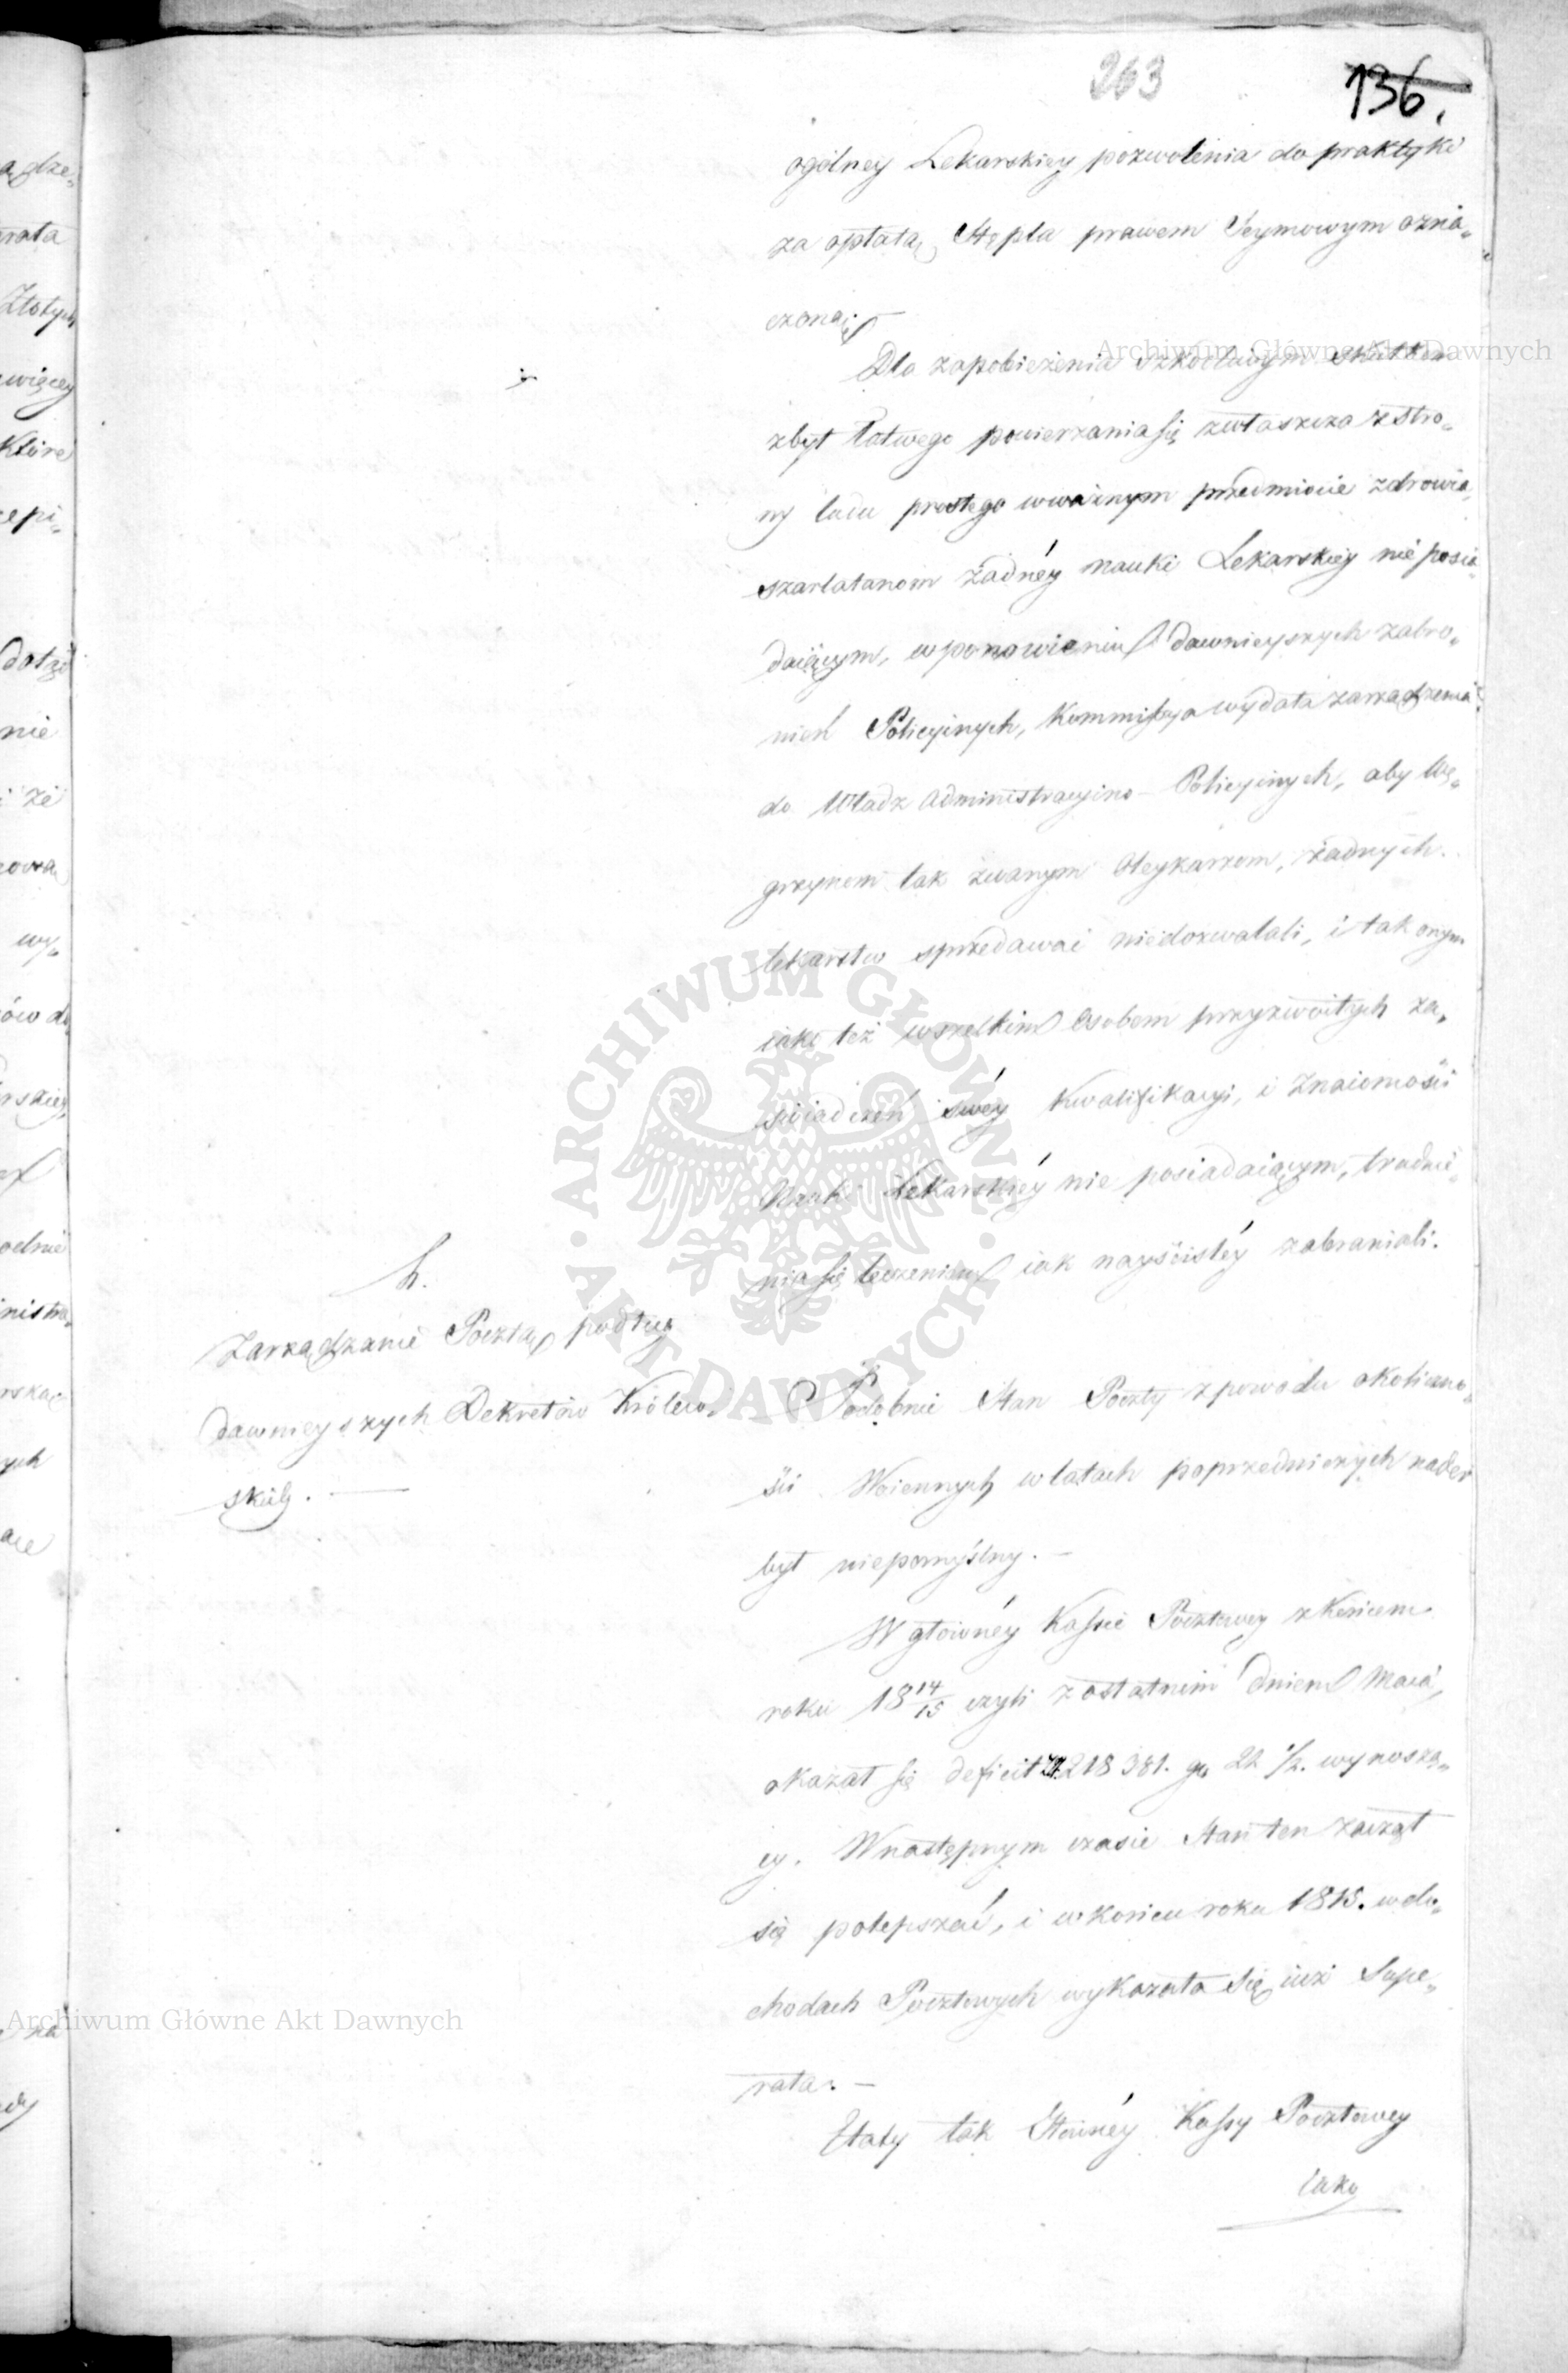 263
136.
ogólney Lekarskiey pozwolenia do praktyki
za opłatą Stępla prawem Seymowym ozna„
czoną.
Dla zapobieżenia szkodliwym skutkom
zbyt łatwego powierzania się zwłaszcza z stro„
ny ludu prostego w ważnym przedmiocie zdrowia,
szarlatanom żadnéy nauki Lekarskiey nie posia„
daiącym, w ponowieniu dawnieyszych zabro„
nień Policyinych, Kommissya wydała zarządzenia
do Władz Administracyino-Policyinych, aby Wę„
grzynom tak zwanym Oleykarzom, żadnych
lekarstw sprzedawać niedozwalali, i tak onym
iako też wszelkim Osobom przyzwoitych za„
świadczeń swéy Kwalifikacyi, i Znaiomości
Nauki Lekarskiéy nie posiadaiącym, trudnie„
nia się leczeniem iak nayściśléy zabraniali.
h.
Zarządzanie Pocztą podług
dawnieyszych Dekretów Królew„
skich. —
Podobnie Stan Poczty z powodu okoliczno„
ści Woiennych w latach poprzedniczych nader
był niepomyślny. —
W głównéy Kassie Pocztowey z Końcem
roku 18 14/15 czyli z ostatnim dniem Maia,
okazał się deficit Zł 218 381. gr 22 1/2. wynoszą„
cy. W następnym czasie Stan ten zaczął
się polepszać, i w końcu roku 1815. w do„
chodach Pocztowych wykazała się iuż Supe„
rata. —
Etaty tak Głównéy Kassy Pocztowey
iako
Archiwum Główne Akt Dawnych
Archiwum Główne Akt Dawnych
ARCHIWUM GŁÓWNE · AKT DAWNYCH ·